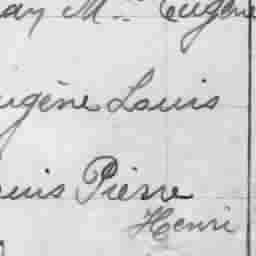 ay Mr. Eugène
ugène Louis
uis Pierre
Henri